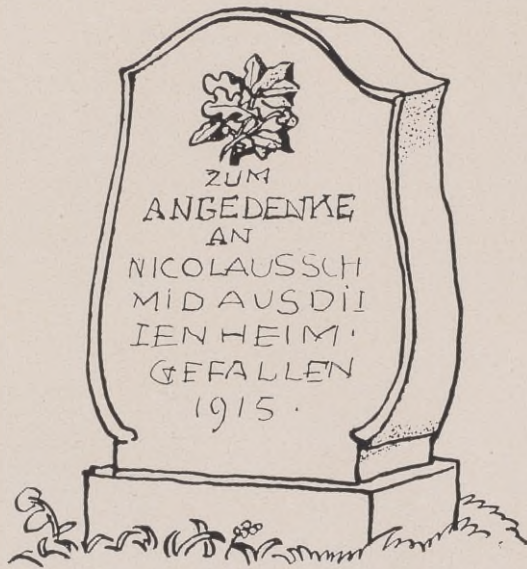 ZUM
ANGEDENKE
AN
NICOLAUS SCH
MiD AUS DiI
IENHEIM·
GEFALLEN
1915.